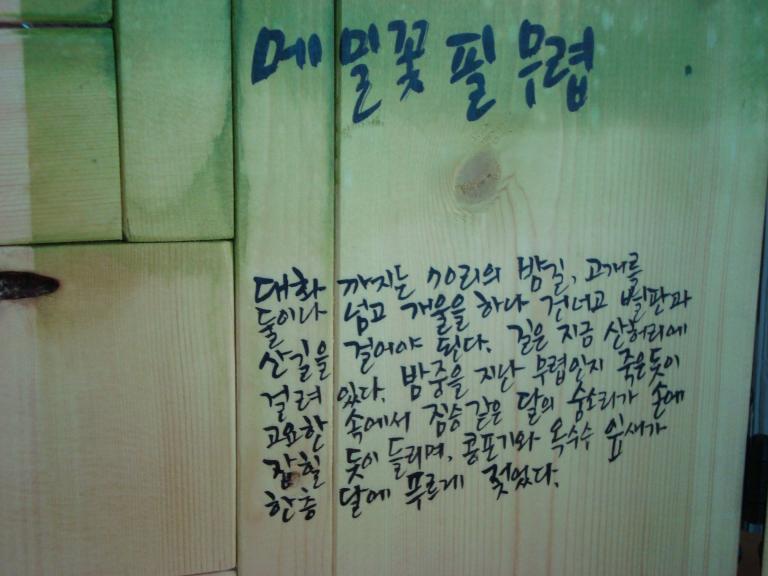 메밀꽃 필 무렵
대화 까지는 70리의 밤길, 고개를
둘이나 넘고 개울을 하나 건너고 벌판과
산길을 걸어야 된다. 길은 지금 산허리에
걸려 있다. 밤중을 지난 무렵인지 죽은듯이
고요한 속에서 짐승같은 달의 숨소리가 손에
잡힐 듯이 들리며, 콩포기와 옥수수 잎새가
한층 달에 푸르게 젖었다.